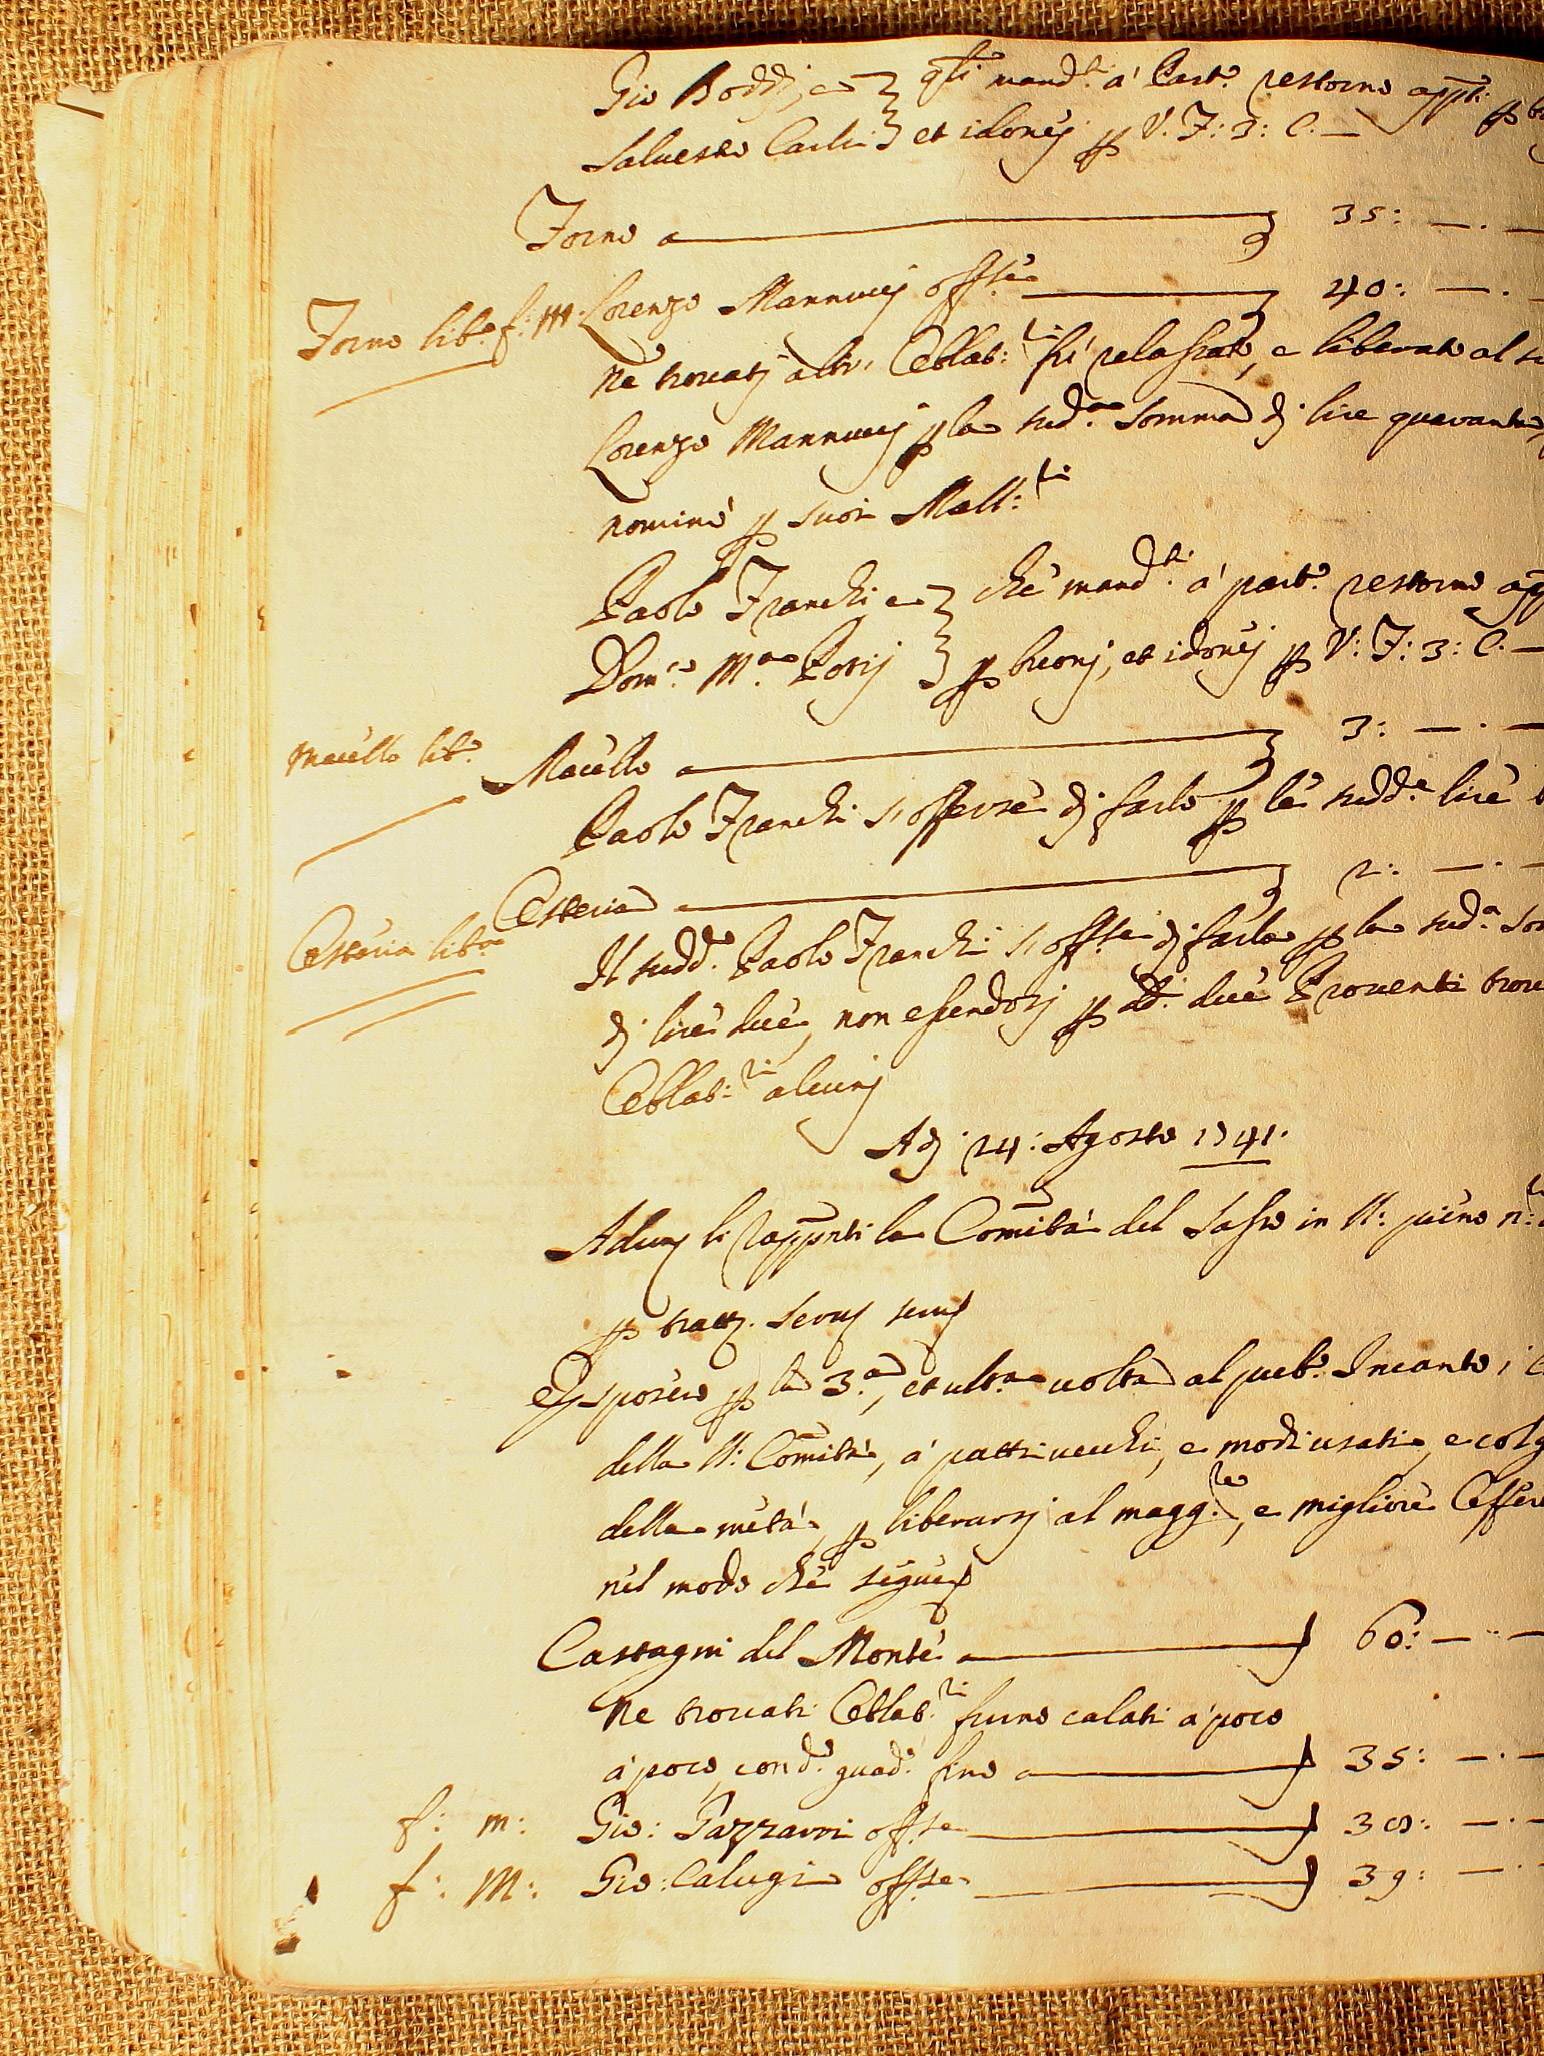 Gio Boddi, e } qti mand.ti a' Part.o restorno appti:
Saluestro Carli } et idonej p V. F: 3: C. —
Forno 35: — . —
Forno lib.o f: m: Lorenzo Mannucij offse 40: — . —
Ne trouatj altri Oblat:ri fu' relassato, e liberato al
Lorenzo Mannucij p la sud.a Somma dj lire quaranta,
nominò p suoi Mall:ri
Paolo Franchi e } che mand.ti a' part.o restorno
Dom.o M.a } p buonj, et idonej p V: F: 3: C. —
Macello lib.o Macello 3: — . —
Paolo Franchi s'offerse dj farlo p le sudd.e lire
Osteria lib.a Osteria 2: — . —
Il sudd.o Paolo Franchi s'offse dj farla p la sud.a
dj lire due, non essendosj p dd.i due Prouenti
Oblat:ri alcunj
Adj 24: Agosto 1741.
Adunj li Rappnti la Comità del Sasso in n.o
p tratt.j Seruj seruj
Esposero p la 3.a, et ult.a uolta al pub.o Incanto, i
della Comità, a' patti uecchi, e modi usati, e col
della metà, p liberarsj al magg.re, e migliore
nel modo che segue
Castagni del Monte 60: — . —
Ne trouati Oblat.ri furno calati a' poco
a' poco, con d.o guad.o fino 35: — . —
f: m: Gio: Pazzavri offse 38: — . —
f: M: Gio: Calugi offse 39: — . —